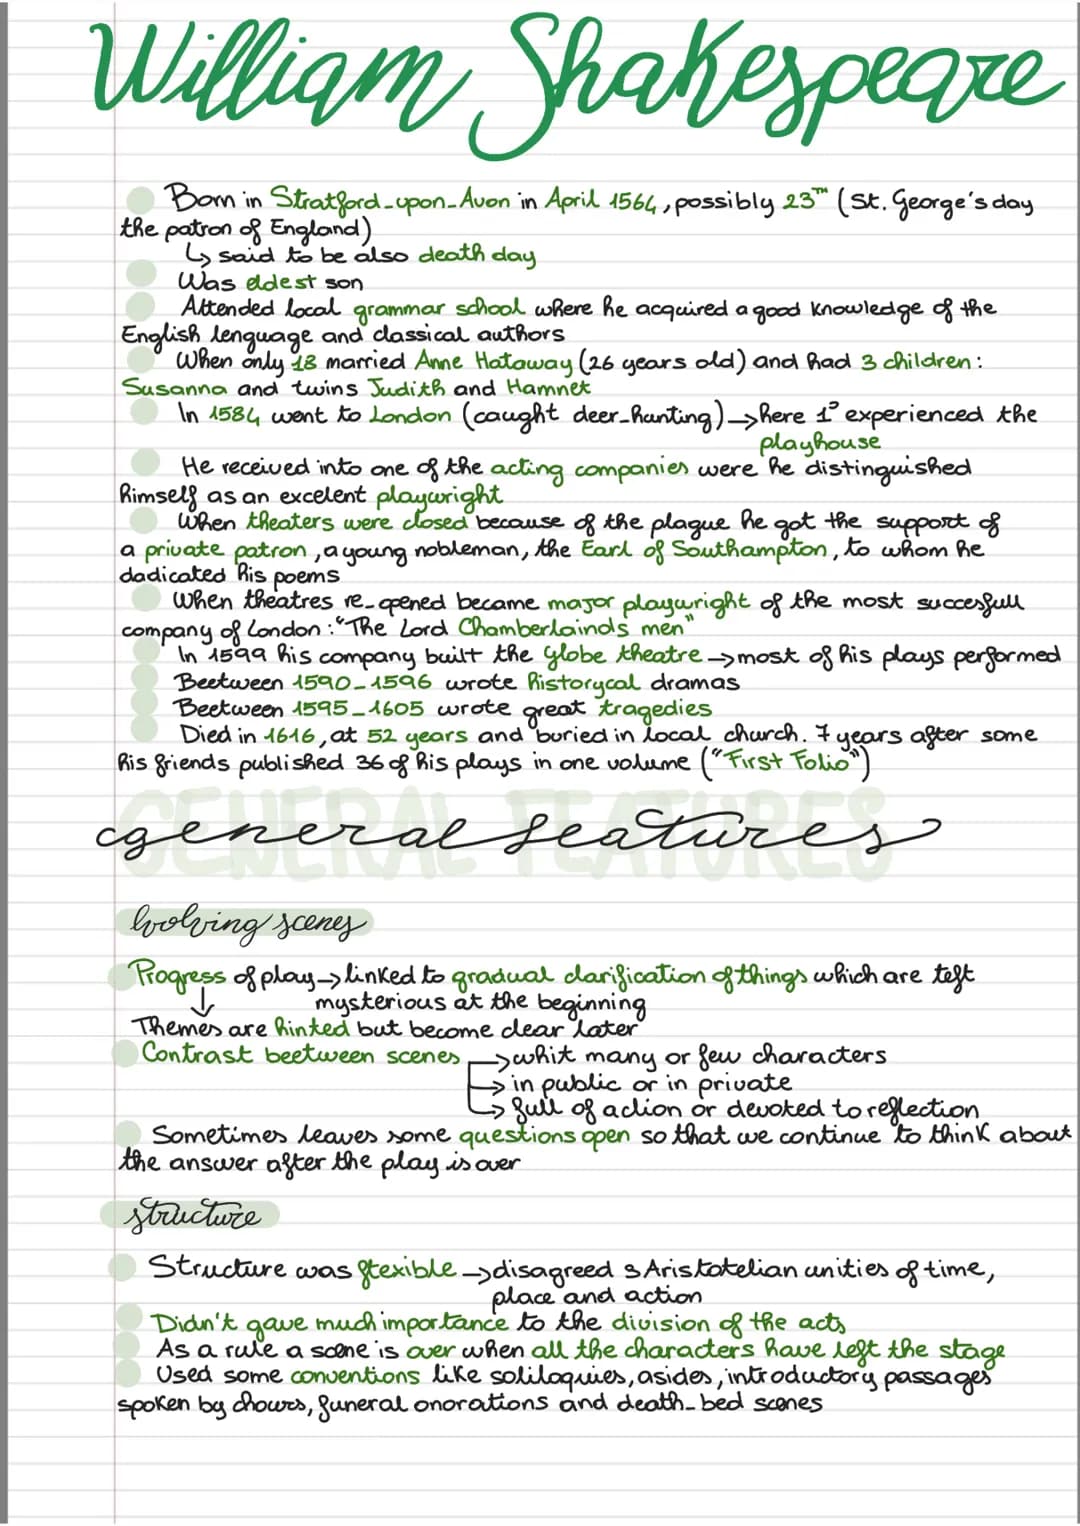 William Shakespeare
Born in Stratford-upon-Avon in April 1564, possibly 23™ (St. George's day
the patron of England)
↳ said to be also death day
Was eldest son
Attended local grammar school where he acquired a good knowledge of the
English lenguage and classical authors
When only 18 married Anne Hataway (26 years old) and had 3 children:
Susanna and twins Judith and Hamnet
In 1584 went to London (caught deer-hunting) → here 1° experienced the
playhouse
He received into one of the acting companies were he distinguished
himself as an excelent playwright
When theaters were closed because of the plague he got the support of
a private patron, a young nobleman, the Earl of Southampton, to whom he
dadicated his poems
When theatres re-opened became major playwright of the most succesfull
company of London: "The Lord Chamberlaind's men"
In 1599 his company built the Globe theatre → most of his plays performed
Beetween 1590-1596 wrote historycal dramas
Beetween 1595-1605 wrote great tragedies
Died in 1616, at 52 years and buried in local church. 7 years after some
his friends published 36 of his plays in one volume ("First Folio")
GENERAL FEATURES
general features
Evolving scenes
Progress of play → linked to gradual clarification of things which are left
↓ mysterious at the beginning
Themes are hinted but become clear later
Contrast beetween scenes → whit many or few characters
→ in public or in private
→ full of action or devoted to reflection
Sometimes leaves some questions open so that we continue to think about
the answer after the play is over
structure
Structure was flexible → disagreed 3 Aristotelian unities of time,
place and action
Didn't gave much importance to the division of the acts
As a rule a scene is over when all the characters have left the stage
Used some conventions like soliloquies, asides, introductory passages
spoken by chours, funeral onorations and death-bed scenes